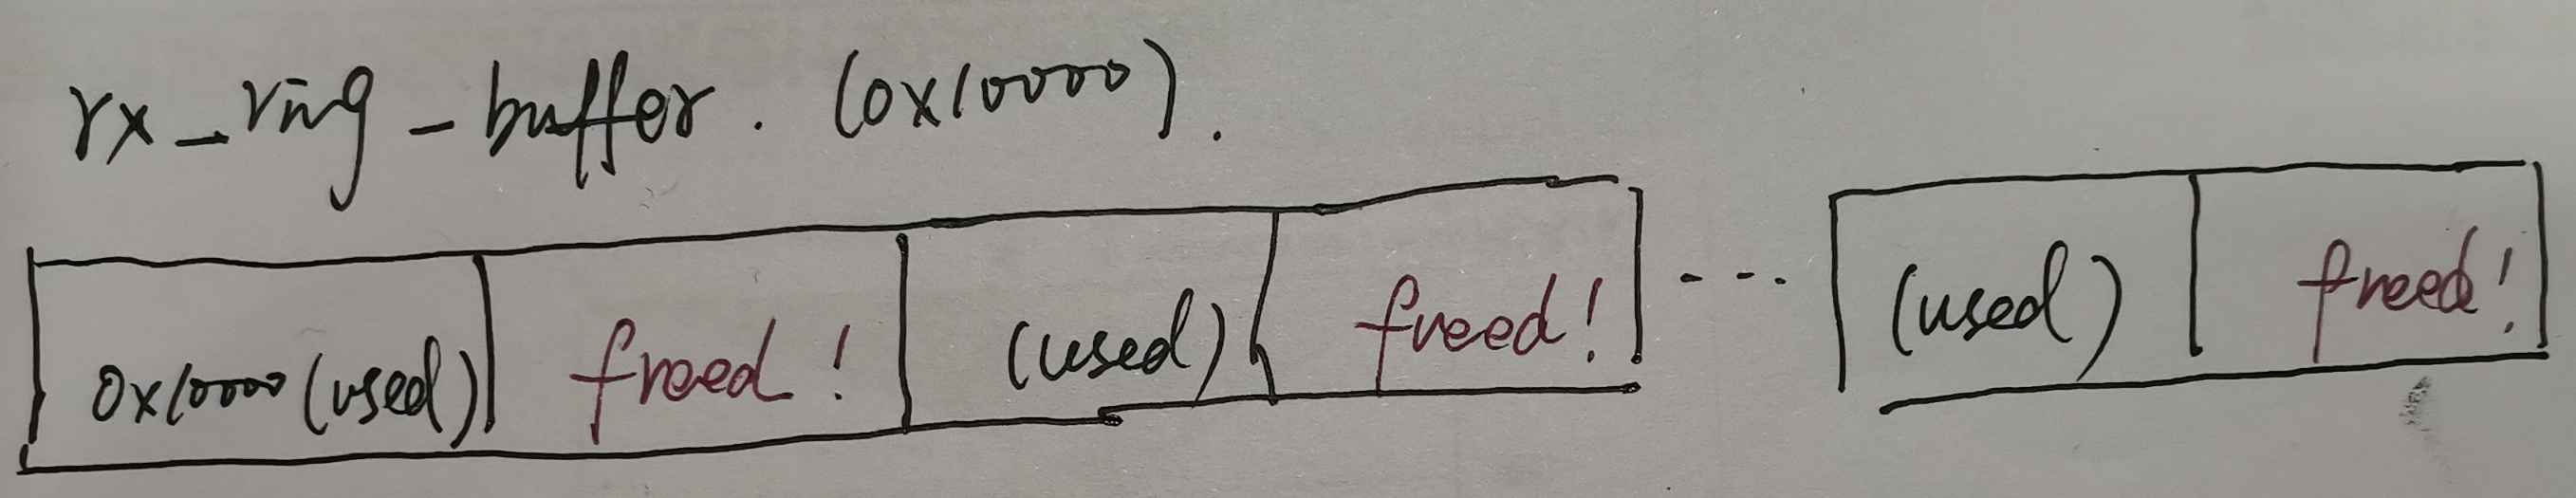 rx_ring_buffer. (0x10000).
0x10000 (used) freed! (used) freed! ... (used) freed!